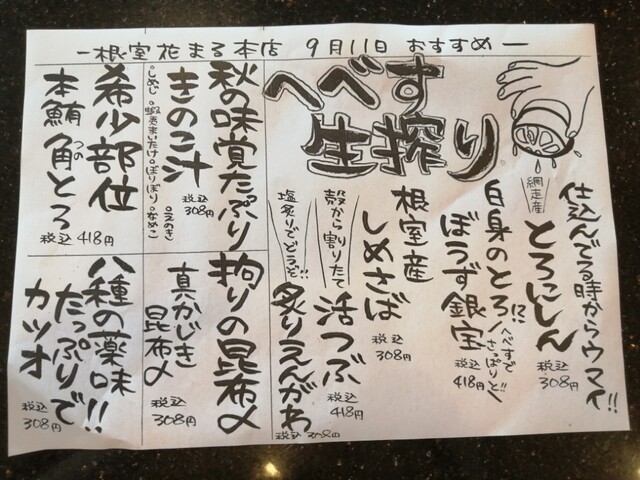 －根室花まる本店 9月11日 おすすめ－
へべす
生搾り
仕込んでる時からウマイ!!
網走産
とろにしん
税込
308円
白身のとろ!?
ぼうず銀宝
へべすで
さっぱりと!!
税込
418円
根室産
しめさば
税込
308円
殻から割りたて
活つぶ
税込
418円
塩炙りでどうぞ!!
炙りえんがわ
税込 308円
秋の味覚たっぷり
きのこ汁
税込
308円
。しめじ。蝦夷まいたけ。ぼりぼり。なめこ
。えのき
希少部位
本鮪 角とろ
つの
税込 418円
拘りの昆布〆
真かじき
昆布〆
税込
308円
八種の薬味!!
たっぷりで
カツオ
税込
308円